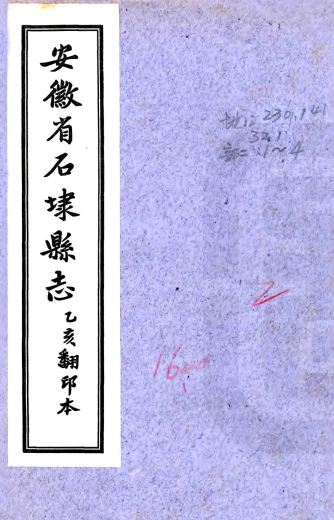 安徽省石埭縣志乙亥翻印本
地:230.141
32.1
部=1~4
乙
16